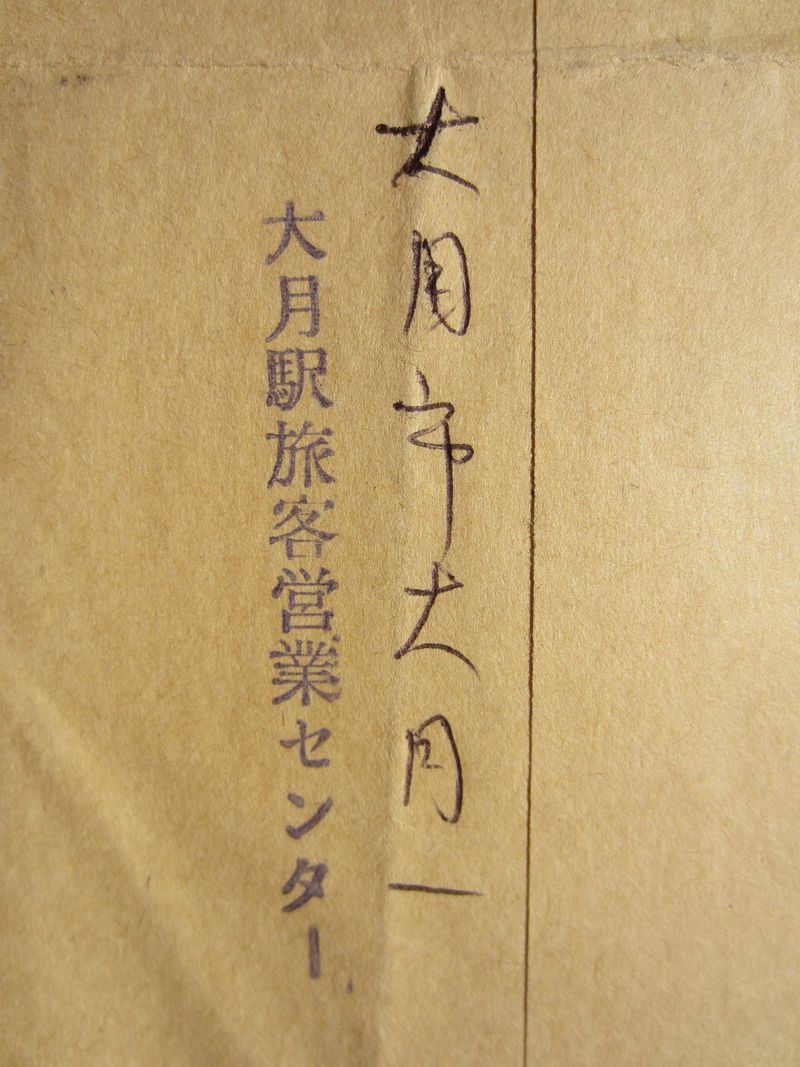 大月市大月一
大月駅旅客営業センター